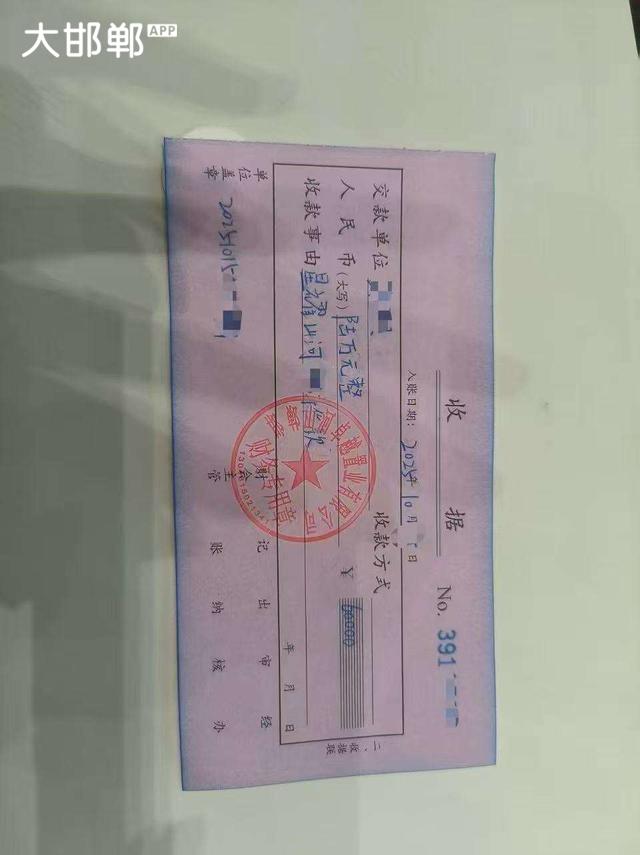 大邯郸APP
收 据
No. 391
入账日期：2025年10月 日
交款单位
收款方式
人民币（大写）陆万元整
￥ 60000
收款事由 星耀山河
年 月 日
二、收据联
单位盖章
财会主管
记账
出纳
审核
经办
20251015
置业有限公司
财务专用章